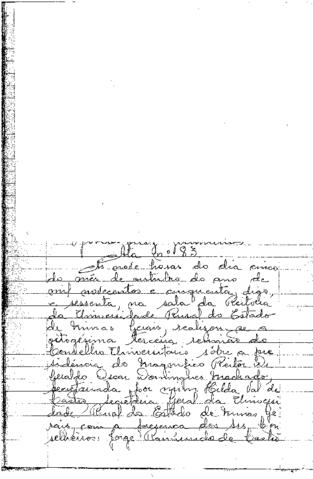 Ata nº 83
Às onze horas do dia cinco
do mês de outubro do ano de
mil novecentos e cinquenta, digo,
e sessenta, na sala da Reitoria
da Universidade Rural do Estado
de Minas Gerais, realizou-se a
octogésima terceira reunião do
Conselho Universitário sôbre a pre
sidência do Magnífico Reitor
Geraldo Oscar Domingues Machado,
secretariada por mim Hilda Val de
Castro, Secretária Geral da Universi
dade Rural do Estado de Minas Ge
rais, com a presença dos Srs. Con
selheiros: Jorge Raimundo de Castro